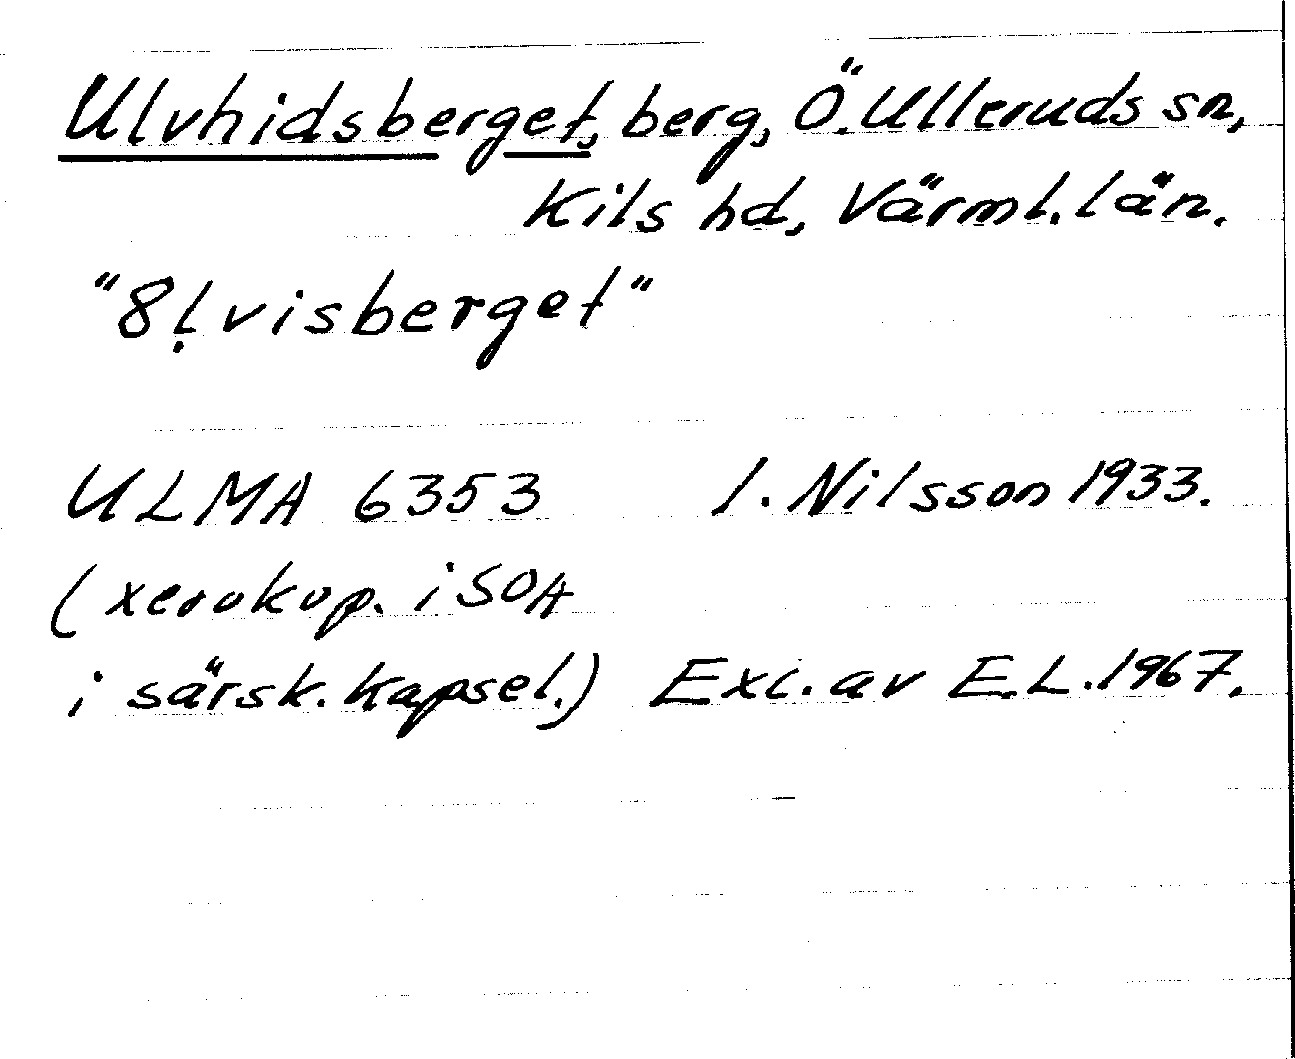 Ulvhidsberget, berg, Ö. Ulleruds sn,
Kils hd, Värml. län.
"8ḷvisberget"
ULMA 6353 I. Nilsson 1933.
(xerokop. i SOA
i särsk. kapsel.) Exc. av E.L. 1967.